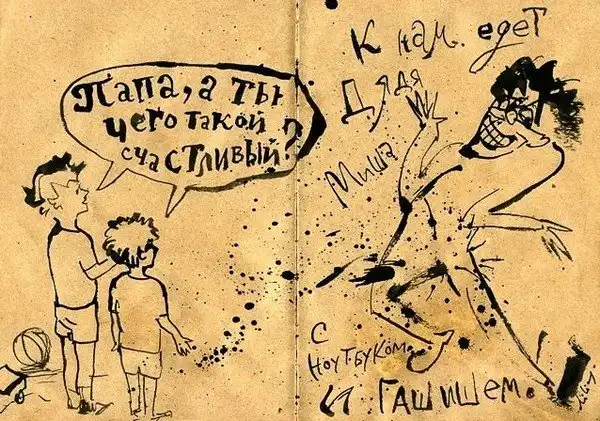 Папа, а ты
чего такой
счастливый?
К нам едет
Дядя
Миша
с
ноутбуком
и гашишем.